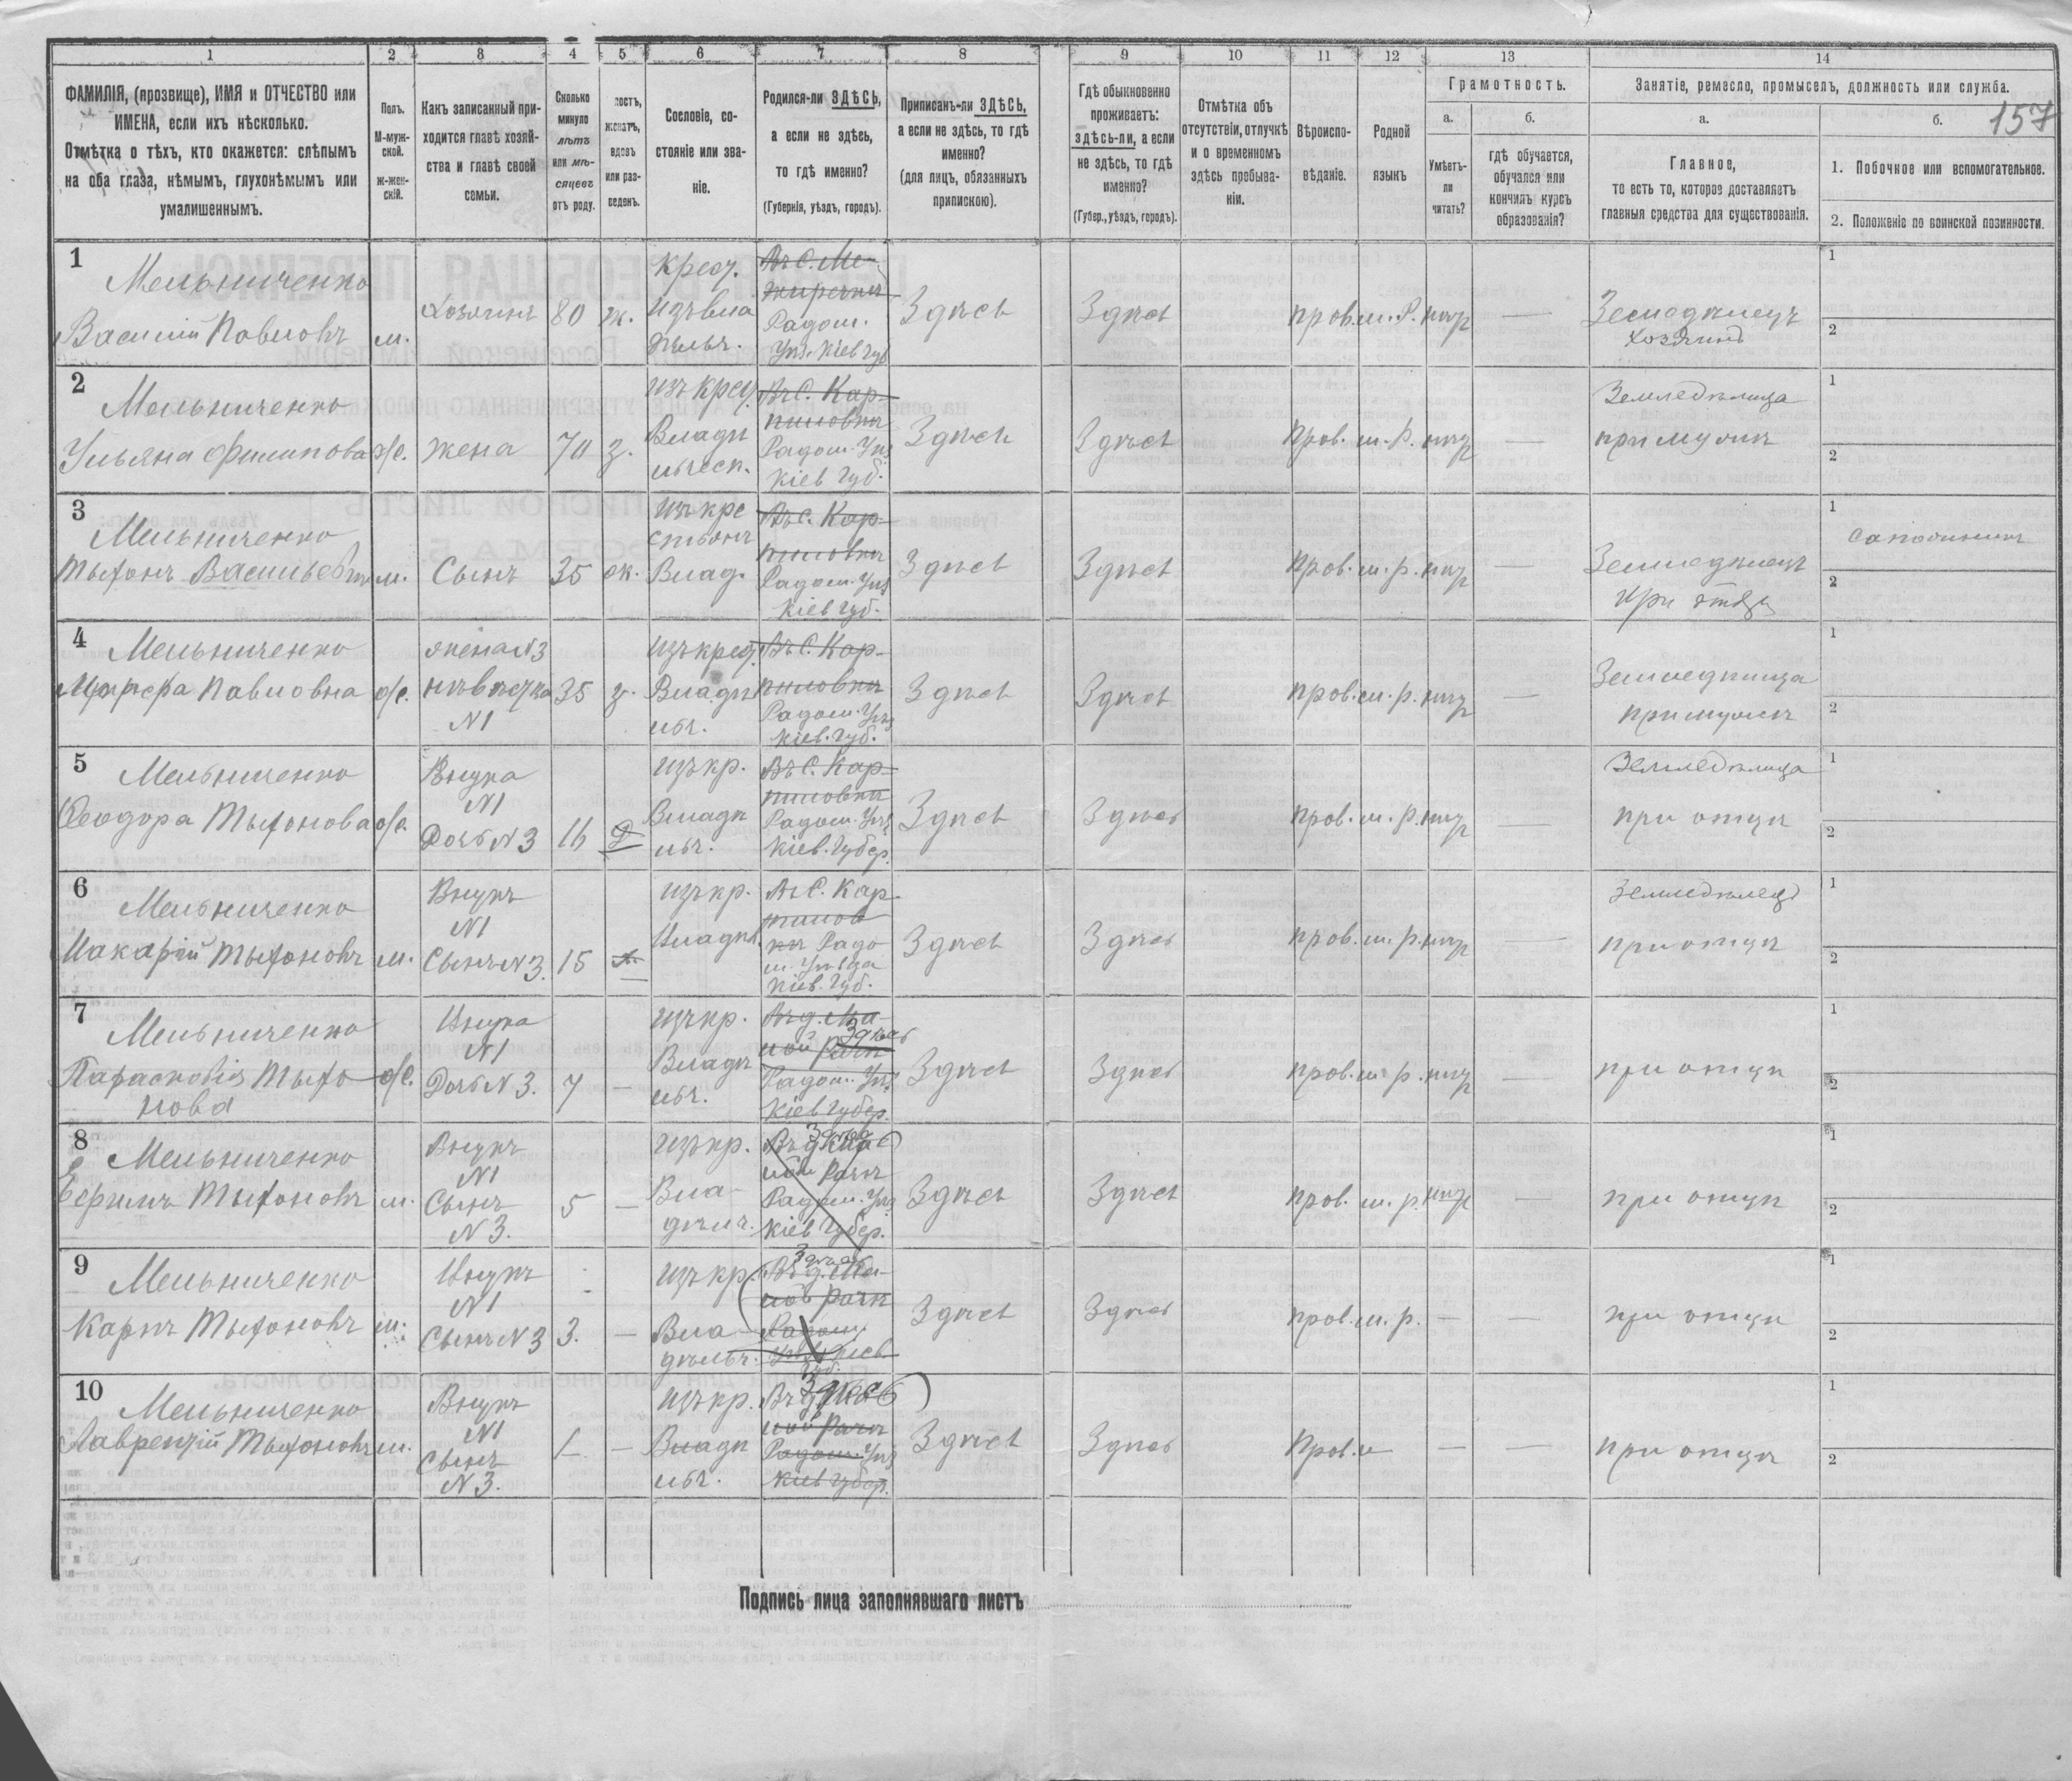 1 2 3 4 5 6 7 8 9 10 11 12 13 14
157
ФАМИЛІЯ, (прозвище), ИМЯ и ОТЧЕСТВО или
ИМЕНА, если ихъ нѣсколько.
Отмѣтка о тѣхъ, кто окажется: слѣпымъ
на оба глаза, нѣмымъ, глухонѣмымъ или
умалишеннымъ.
Полъ.
М-муж-
ской.
ж-жен-
скій.
Какъ записанный при-
ходится главѣ хозяй-
ства и главѣ своей
семьи.
Сколько
минуло
лѣтъ
или мѣ-
сяцевъ
отъ роду.
лостъ,
женатъ,
вдовъ
или раз-
веденъ.
Сословіе, со-
стояніе или зва-
ніе.
Родился-ли ЗДѢСЬ,
а если не здѣсь,
то гдѣ именно?
(Губернія, уѣздъ, городъ).
Приписанъ-ли ЗДѢСЬ,
а если не здѣсь, то гдѣ
именно?
(для лицъ, обязанныхъ
припискою).
Гдѣ обыкновенно
проживаетъ:
здѣсь-ли, а если
не здѣсь, то гдѣ
именно?
(Губер., уѣздъ, городъ).
Отмѣтка объ
отсутствіи, отлучкѣ
и о временномъ
здѣсь пребыва-
ніи.
Вѣроиспо-
вѣданіе.
Родной
языкъ
Грамотность.
а.
Умѣетъ-
ли
читать?
б.
гдѣ обучается,
обучался или
кончилъ курсъ
образованія?
Занятіе, ремесло, промыселъ, должность или служба.
а.
Главное,
то есть то, которое доставляетъ
главныя средства для существованія.
б.
1. Побочное или вспомогательное.
2. Положеніе по воинской повинности.
1
Мельниченко
Василій Павловъ м. Хозяинъ 80 ж.
Крест.
изъ вла
дѣльч.
Въ С. Ме-
жиречки
Радом.
Уѣз. Кіев Губ
Здѣсь Здѣсь прав. м. Р. нѣт —
Земледѣлецъ
хозяинъ
1
2
2
Мельниченко
Ульяна Филипова ж. жена 70 з.
изъ крест.
Владѣ
льческ.
Въ С. Кар-
пиловки
Радом. Уѣз
Кіев Губ.
Здѣсь Здѣсь прав. м. р. нѣт —
Земледѣлица
при мужѣ
1
2
3
Мельниченко
Тыхонъ Васильевъ м. Сынъ 35 ж.
изъ кре
стьянъ
Влад.
Въ С. Кар-
пиловки
Радом. Уѣз
Кіев Губ.
Здѣсь Здѣсь прав. м. р. нѣт —
Земледѣлецъ
при отцѣ
1 Сапожникъ
2
4
Мельниченко
Марфа Павловна ж.
жена N3
невѣстка
N1
35 з.
изъ крест.
Владѣ
льч.
Въ С. Кар-
пиловки
Радом. Уѣз
Кіев. Губ.
Здѣсь Здѣсь прав. м. р. нѣт —
Земледѣлица
при мужѣ
1
2
5
Мельниченко
Феодора Тыхонова ж.
Внука
N1
Дочь N3
16
изъ кр.
Владѣ
льч.
Въ С. Кар-
пиловки
Радом. Уѣз
Кіев. Губер.
Здѣсь Здѣсь прав. м. р. нѣт —
Земледѣлица
при отцѣ
1
2
6
Мельниченко
Макарій Тыхоновъ м.
Внукъ
N1
Сынъ N3.
15
изъ кр.
Владѣл.
Въ С. Кар-
пилов
ки Радо
м. Уѣзда
Кіев. Губ.
Здѣсь Здѣсь прав. м. р. нѣт —
Земледѣлецъ
при отцѣ
1
2
7
Мельниченко
Парасковія Тыхо-
нова
ж.
Внука
N1
Дочь N3.
7 —
изъ кр.
Владѣ
льч.
Въ д. Ма-
лой Рачи
Здѣсь
Радом. Уѣз
Кіев Губер.
Здѣсь Здѣсь прав. м. р. нѣт —
при отцѣ
1
2
8
Мельниченко
Ефимъ Тыхоновъ м.
Внукъ
N1
Сынъ
N3.
5 —
изъ кр.
Вла-
дѣлч.
Здѣсь
Въ д. Ма
лой Рачи
Радом. Уѣз
Кіев Губер.
Здѣсь Здѣсь прав. м. р. нѣт —
при отцѣ
1
2
9
Мельниченко
Карпъ Тыхоновъ м.
Внукъ
N1
Сынъ N3
3. —
изъ кр.
Вла-
дѣльч.
Здѣсь
Въ д. Ма-
лой Рачи
Радом.
Уѣз. Кіев.
Губ.
Здѣсь Здѣсь прав. м. р. — —
при отцѣ
1
2
10
Мельниченко
Лаврентій Тыхоновъ м.
Внукъ
N1
Сынъ
N3.
1 —
изъ кр.
Владѣ
льч.
Здѣсь
Въ д. Ма
лой Рачи
Радом. Уѣз
Кіев Губер.
Здѣсь Здѣсь Прав. м — —
при отцѣ
1
2
Подпись лица заполнявшаго листъ